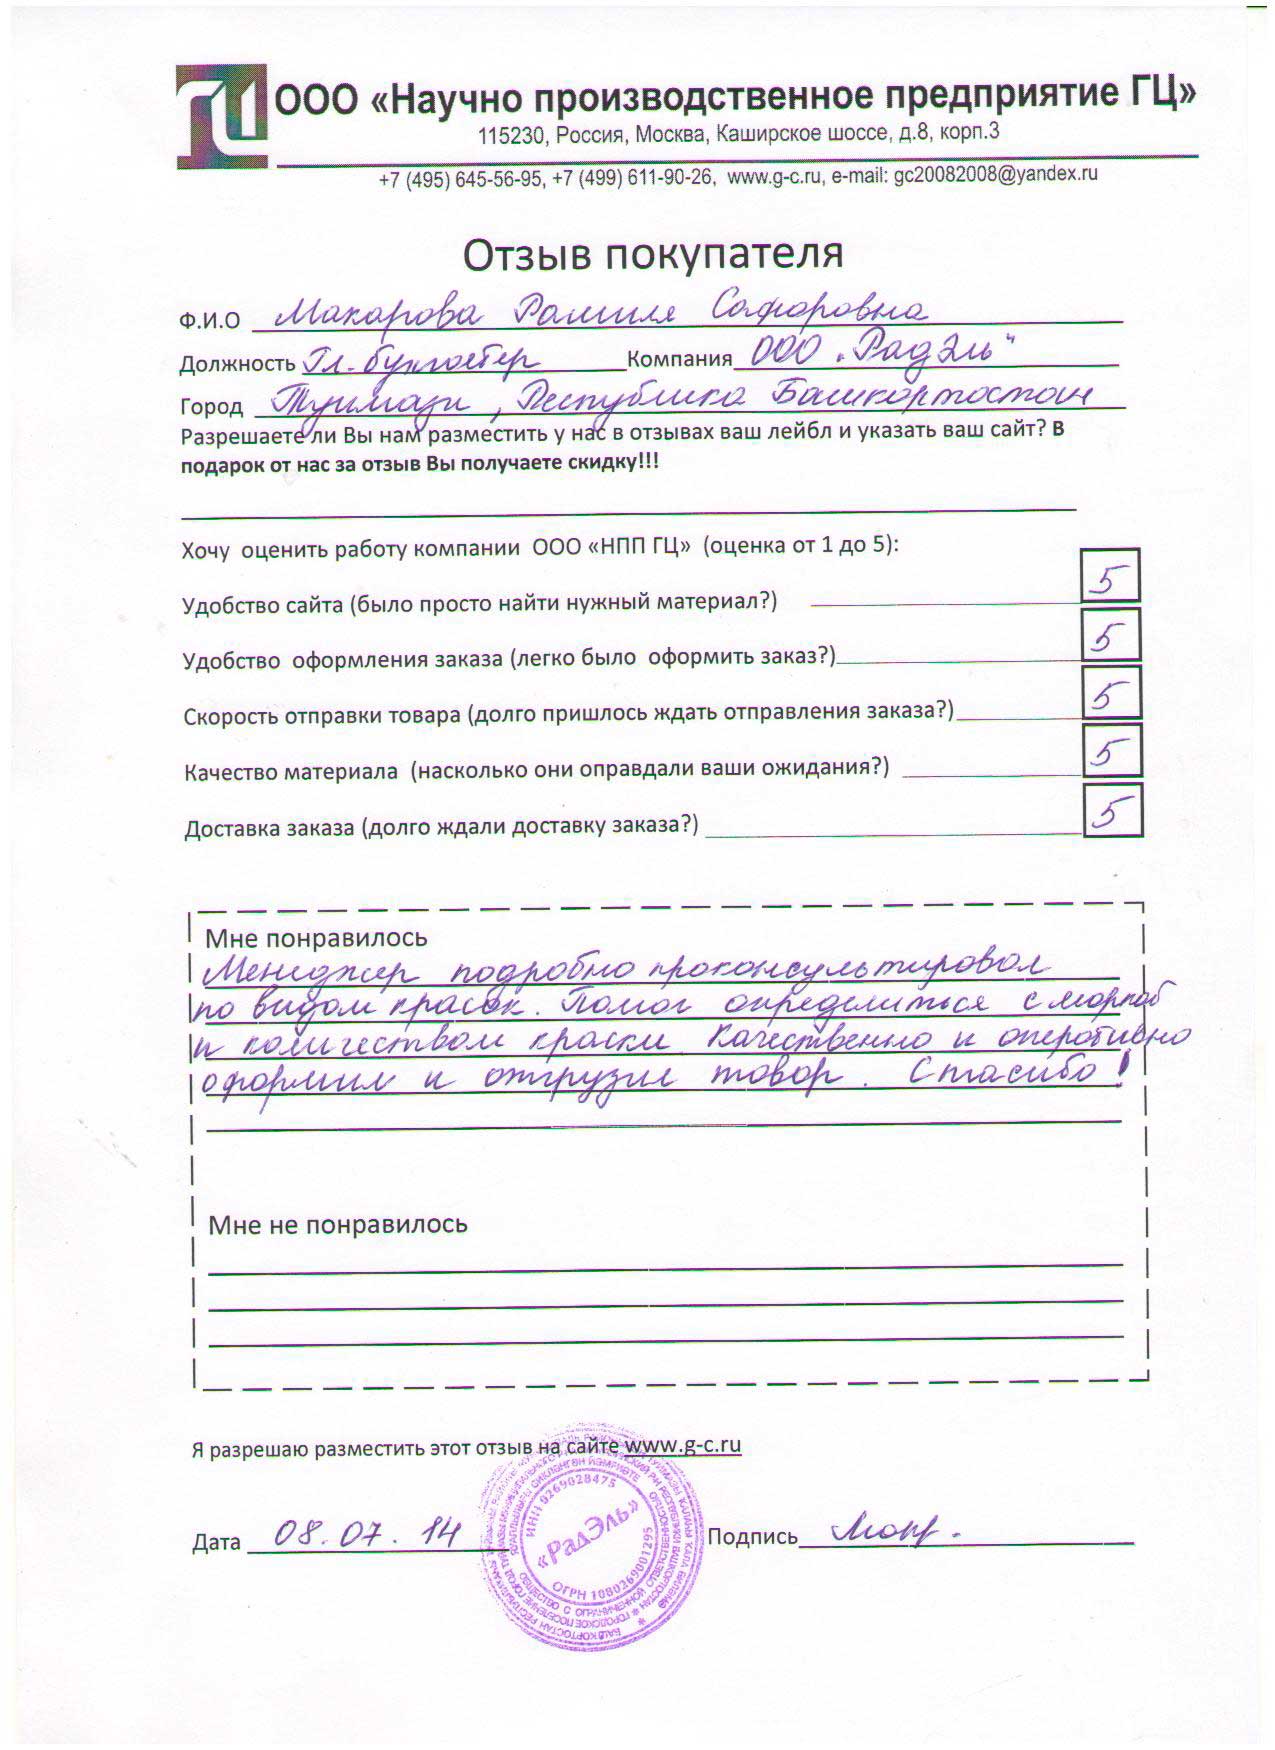 ГЦ ООО «Научно производственное предприятие ГЦ»
115230, Россия, Москва, Каширское шоссе, д.8, корп.3
+7 (495) 645-56-95, +7 (499) 611-90-26, www.g-c.ru, e-mail: gc20082008@yandex.ru
Отзыв покупателя
Ф.И.О Макарова Рамиля Сафаровна
Должность Гл. бухгалтер Компания ООО "РадЭль"
Город Туймазы, Республика Башкортостан
Разрешаете ли Вы нам разместить у нас в отзывах ваш лейбл и указать ваш сайт? В
подарок от нас за отзыв Вы получаете скидку!!!
Хочу оценить работу компании ООО «НПП ГЦ» (оценка от 1 до 5):
Удобство сайта (было просто найти нужный материал?) 5
Удобство оформления заказа (легко было оформить заказ?) 5
Скорость отправки товара (долго пришлось ждать отправления заказа?) 5
Качество материала (насколько они оправдали ваши ожидания?) 5
Доставка заказа (долго ждали доставку заказа?) 5
Мне понравилось
Менеджер подробно проконсультировал
по видам красок. Помог определиться с маркой
и количеством краски. Качественно и оперативно
оформил и отгрузил товар. Спасибо!
Мне не понравилось
Я разрешаю разместить этот отзыв на сайте www.g-c.ru
Дата 08.07.14 Подпись
ИНН 0269028475
«РадЭль»
ОГРН 1080269001295
ОБЩЕСТВО С ОГРАНИЧЕННОЙ ОТВЕТСТВЕННОСТЬЮ